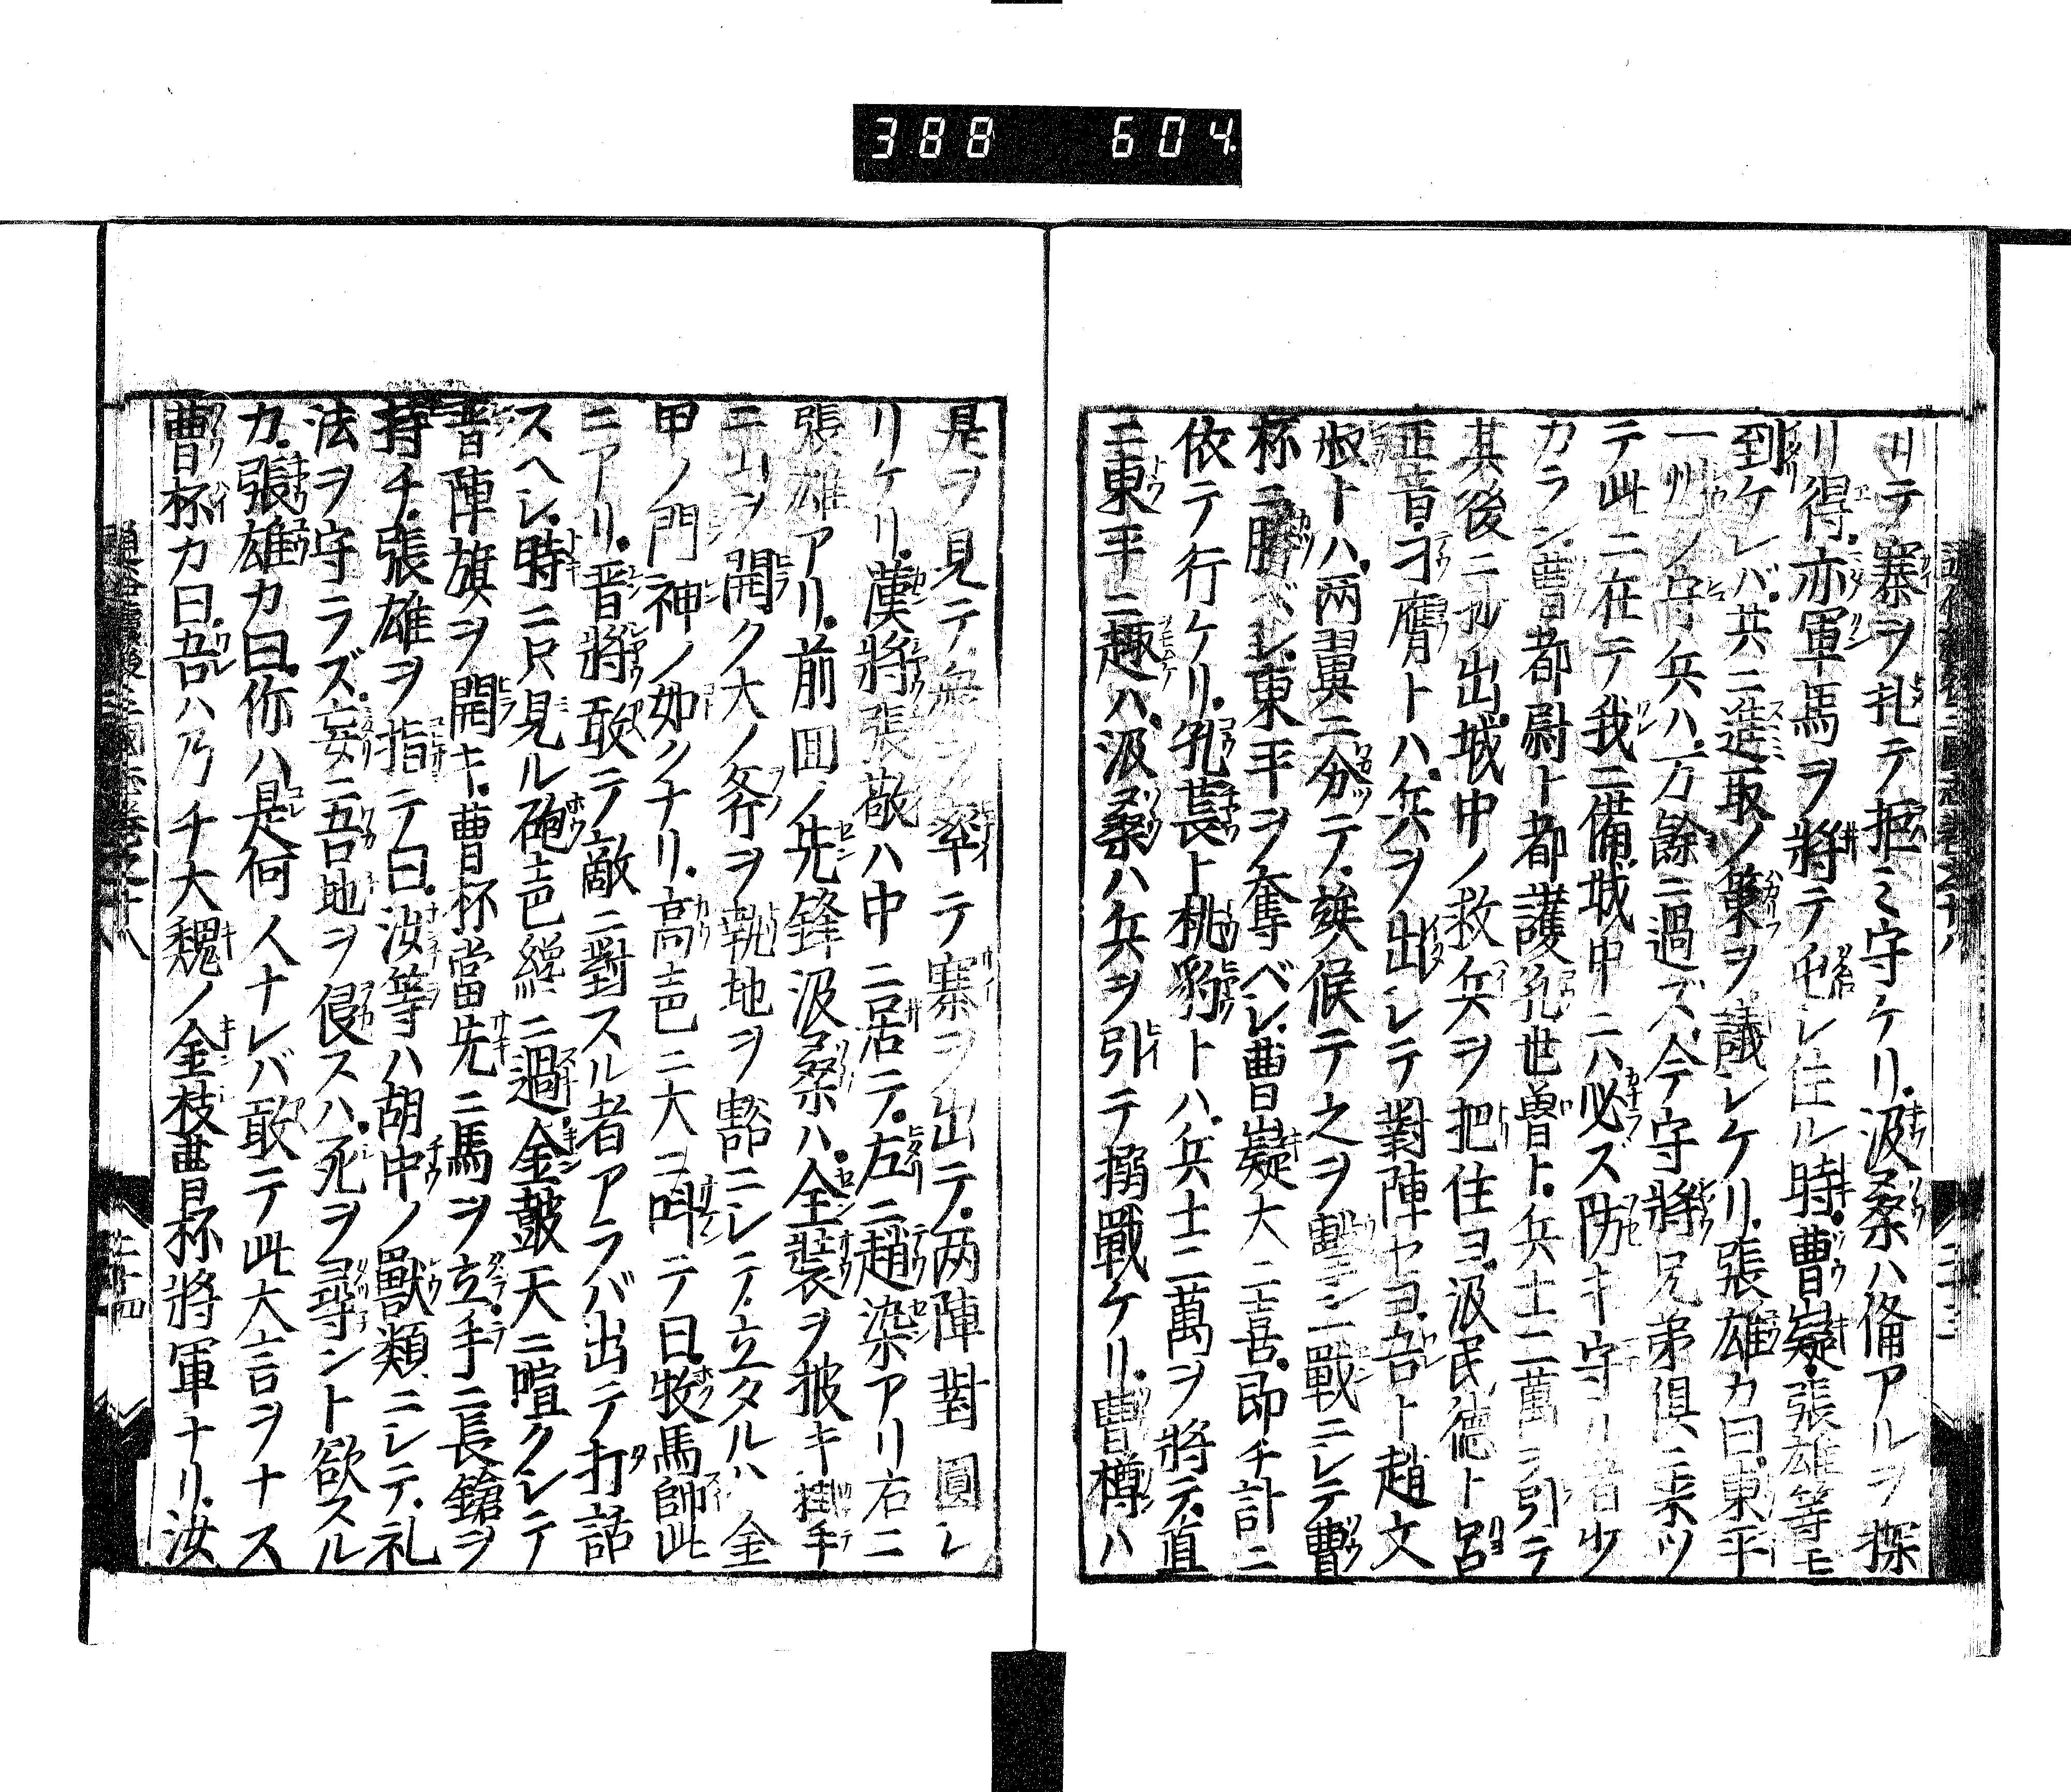 388 604
リテ寨ヲ扎テ拒ミ守ケリ汲桑ハ備アルヲ探
リ得亦軍馬ヲ將テ屯シ住ル時曹嶷張雄等モ
到ケレバ共ニ進取ノ策ヲ議シケリ張雄カ曰東平
一州ノ守兵ハ万餘ニ過ズ今守將兄弟倶ニ来ツ
テ此ニ在テ我ニ備城中ニハ必ス防キ守ル者少
カラン曹都尉ト都護孔世曽ト兵士二萬ヲ引テ
其後ニ抄出城中ノ救兵ヲ把住ヨ汲民德ト呂
正音刁膺トハ兵ヲ出シテ對陣ヤヨ吾ト趙文
叔トハ两翼ニ分テ挨候テ之ヲ撃シ一戰ニシテ曹
杯ニ勝ベシ東平ヲ奪ベシ曹嶷大ニ喜即チ計ニ
依テ行ケリ孔萇ト桃豹トハ兵士二萬ヲ將テ直
ニ東平ニ趣ハ汲桑ハ兵ヲ引テ搦戰ケリ曹樽ハ
是ヲ見テ衆ヲ率テ寨ヲ出テ两陣對圓シ
リケリ漢將張敬ハ中ニ居テ左ニ趙染アリ右ニ
張雄アリ前面ノ先鋒汲桑ハ全裝ヲ披キ掛手
ニ山ヲ開ク大ノ斧ヲ執地ヲ豁ニシテ立タルハ金
甲ノ門神ノ如クナリ高声ニ大ニ叫テ曰牧馬帥此
ニアリ晋將敢テ敵ニ對スル者アラバ出テ打話
スヘシ時ニ只見ル砲声纔ニ過金鼓天ニ喧クシテ
晋陣旗ヲ開キ曹杯當先ニ馬ヲ立手ニ長鎗ヲ
持チ張雄ヲ指テ曰汝等ハ胡中ノ獸類ニシテ礼
法ヲ守ラズ妄ニ吾地ヲ侵スハ死ヲ尋ント欲スル
カ張雄カ曰你ハ是何人ナレバ敢テ此大言ヲナス
曹杯カ曰吾ハ乃チ大魏ノ金枝曹杯將軍ナリ汝